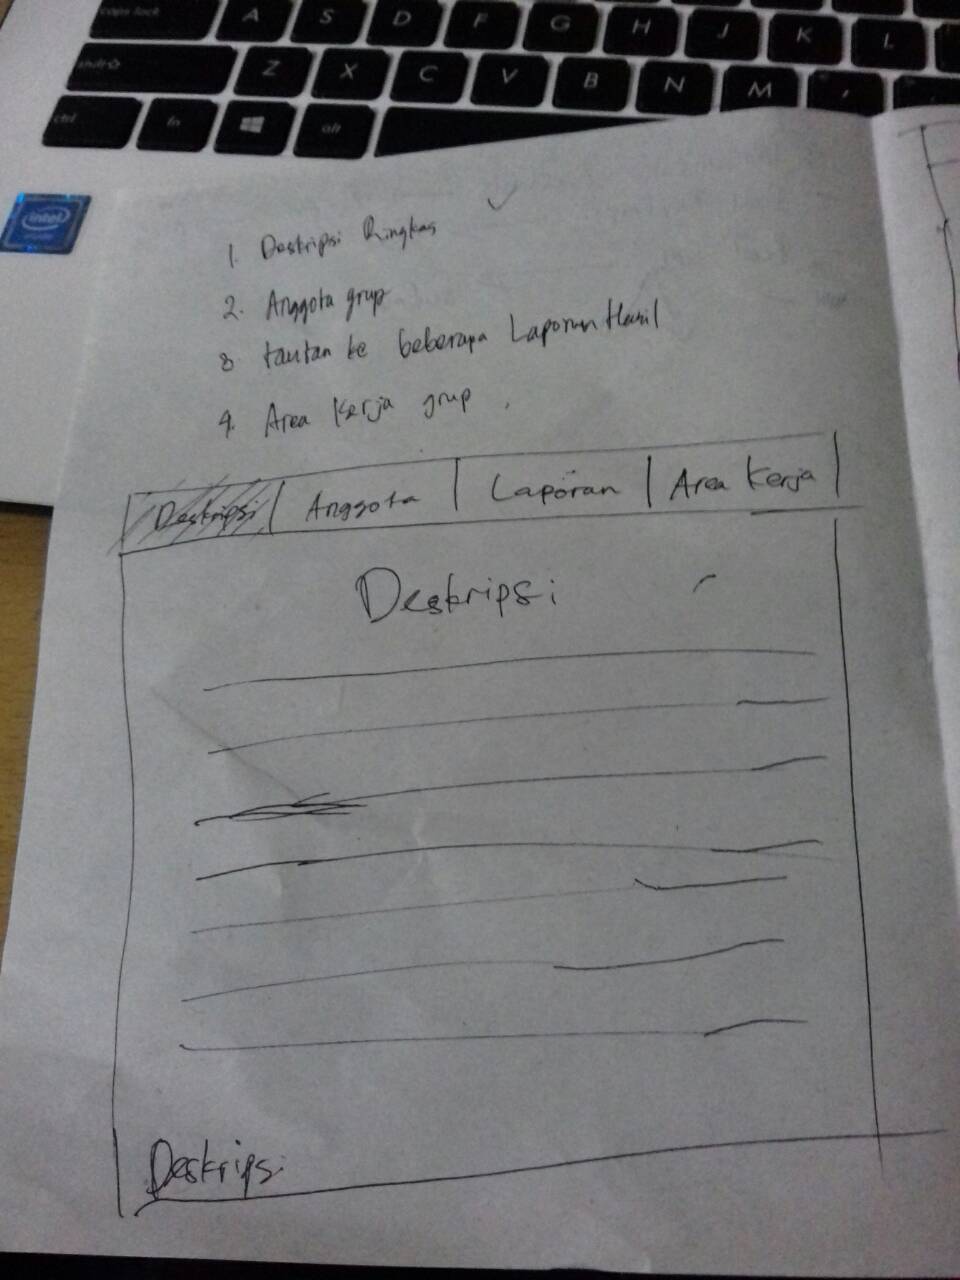 caps lock A S D F G H J K L
shift Z X C V B N M ,
ctrl fn alt
intel
1. Deskripsi Ringkas
2. Anggota grup
3 tautan ke beberapa Laporan Hasil
4. Area Kerja grup .
Deskripsi | Anggota | Laporan | Area Kerja |
Deskripsi
Deskripsi